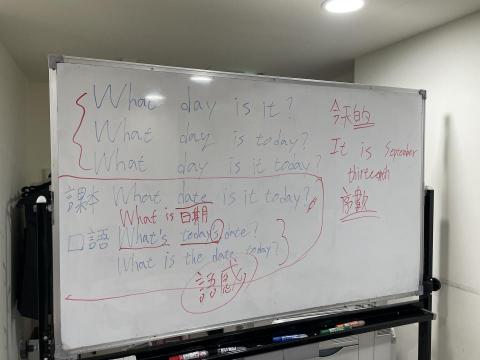 What day is it?
What day is today?
What day is it today?
課本 What date is it today?
What is 日期
口語 What's today's date?
What is the date today?
語感
今天的
It is September
thirteenth
序數